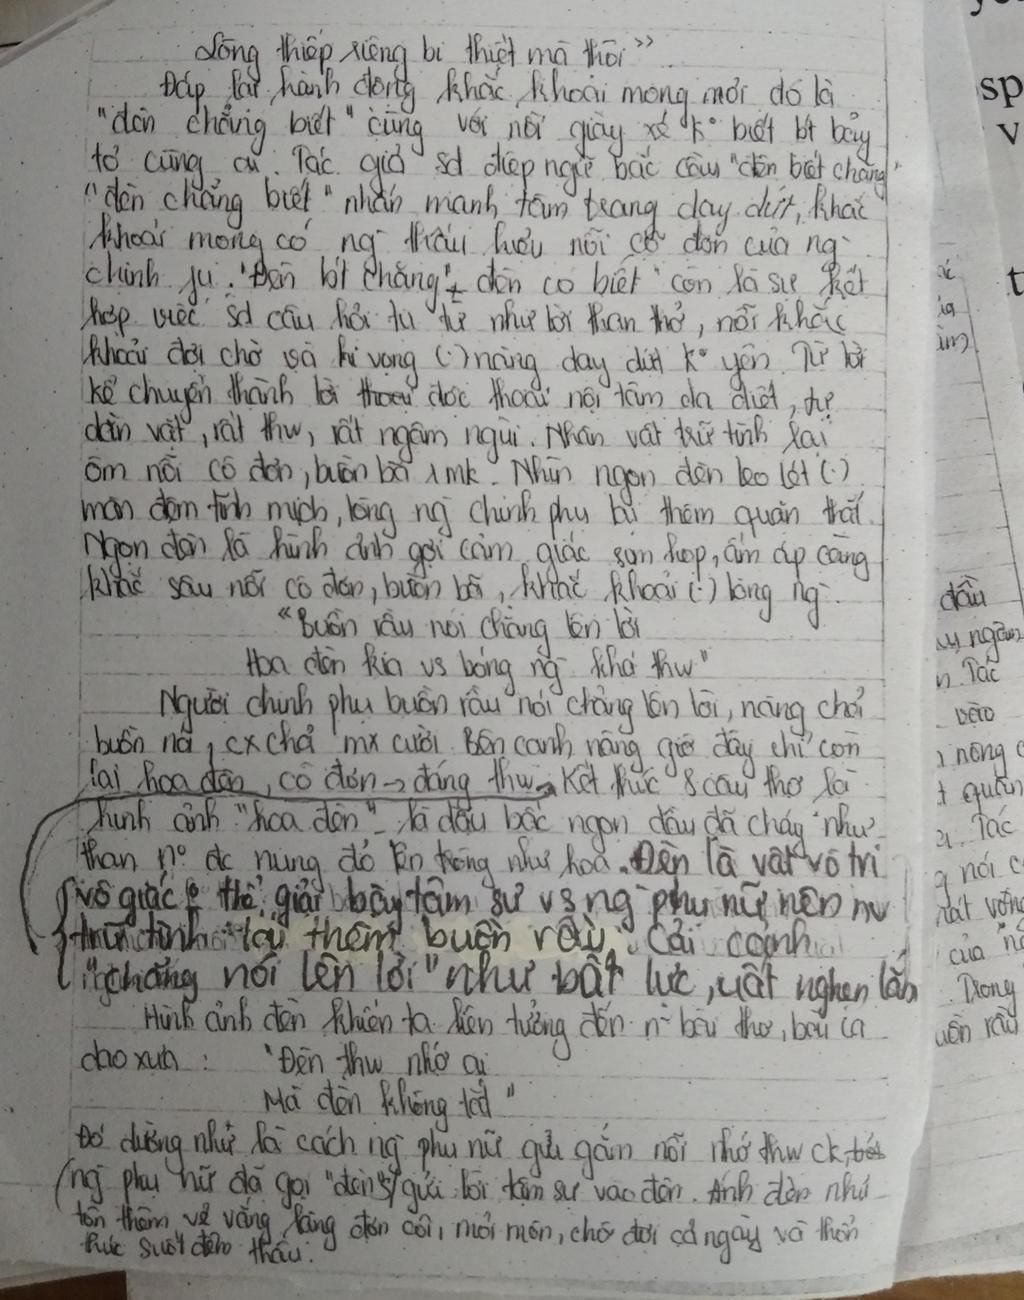 Lòng thiếp riêng bi thiết mà thôi"
Đáp lại hành động khắc khoải mong mỏi đó là
"đèn chẳng biết" cùng với nỗi giày xé k° biết bt bày
tỏ cùng ai. Tác giả sd điệp ngữ bắc cầu "đèn biết chăng"
"đèn chẳng biết" nhấn mạnh tâm trạng day dứt, khắc
khoải mong có ng thấu hiểu nỗi cô đơn của ng
chinh fụ. "Đèn bít chăng", đèn có biết" còn là sự kết
hợp việc sd câu hỏi tu từ như lời than thở, nỗi khắc
khoải đợi chờ và hi vọng (.) nàng day dứt k° yên. Từ lời
kể chuyện thành lời độc thoại nội tâm da diết, tự
dằn vặt, rất thw, rất ngậm ngùi. Nhân vật trữ tình lại
ôm nỗi cô đơn, buồn bã 1 mk. Nhìn ngọn đèn leo lét (.)
màn đêm tĩnh mịch, lòng ng chinh phụ bỗi thêm quặn thắt.
Ngọn đèn là hình ảnh gợi cảm giác sum họp, ấm áp càng
khắc sâu nỗi cô đơn, buồn bã, khắc khoải (.) lòng ng
"Buồn rầu nói chẳng lên lời
Hoa đèn kia vs bóng ng khá thw"
Người chinh phụ buồn rầu nói chẳng lên lời, nàng chả
buồn nói, cx chả mx cười. Bên cạnh nàng giờ đây chỉ còn
lại hoa đèn, cô đơn → đáng thw. Kết thúc 8 câu thơ là
hình ảnh "hoa đèn" là đầu bấc ngọn dầu đã cháy như
than n° đc nung đỏ lên trông như hoa. Đèn là vật vô tri
vô giác thể giãi bày tâm sự vs ng phụ nữ nên nv
trữ tình lại thêm buồn rầu. Cái cảnh
"chẳng nói lên lời" như bất lực, uất nghẹn lắm
Hình ảnh đèn khiến ta liên tưởng đến n~ bài thơ, bài ca
dao xưa: "Đèn thw nhớ ai
Mà đèn không tắt"
Đó dường như là cách ng phụ nữ gửi gắm nỗi nhớ thw ck,
ng phụ nữ đã gọi "đèn" gửi lời tâm sự vào đèn. Ánh đèn như
tôn thêm vẻ vắng lặng đơn côi, mỏi mòn, chờ đợi cả ngày và thổn
thức suốt đêm thâu.
sp
V
t
dầu
n. Tác
vào
nóng
quấn
Tác
nói c
của "n
Trong
uồn rầu